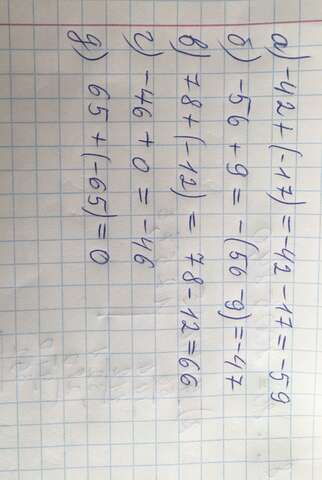 а) -42 + (-17) = -42 - 17 = -59
б) -56 + 9 = -(56 - 9) = -47
в) 78 + (-12) = 78 - 12 = 66
г) -46 + 0 = -46
д) 65 + (-65) = 0